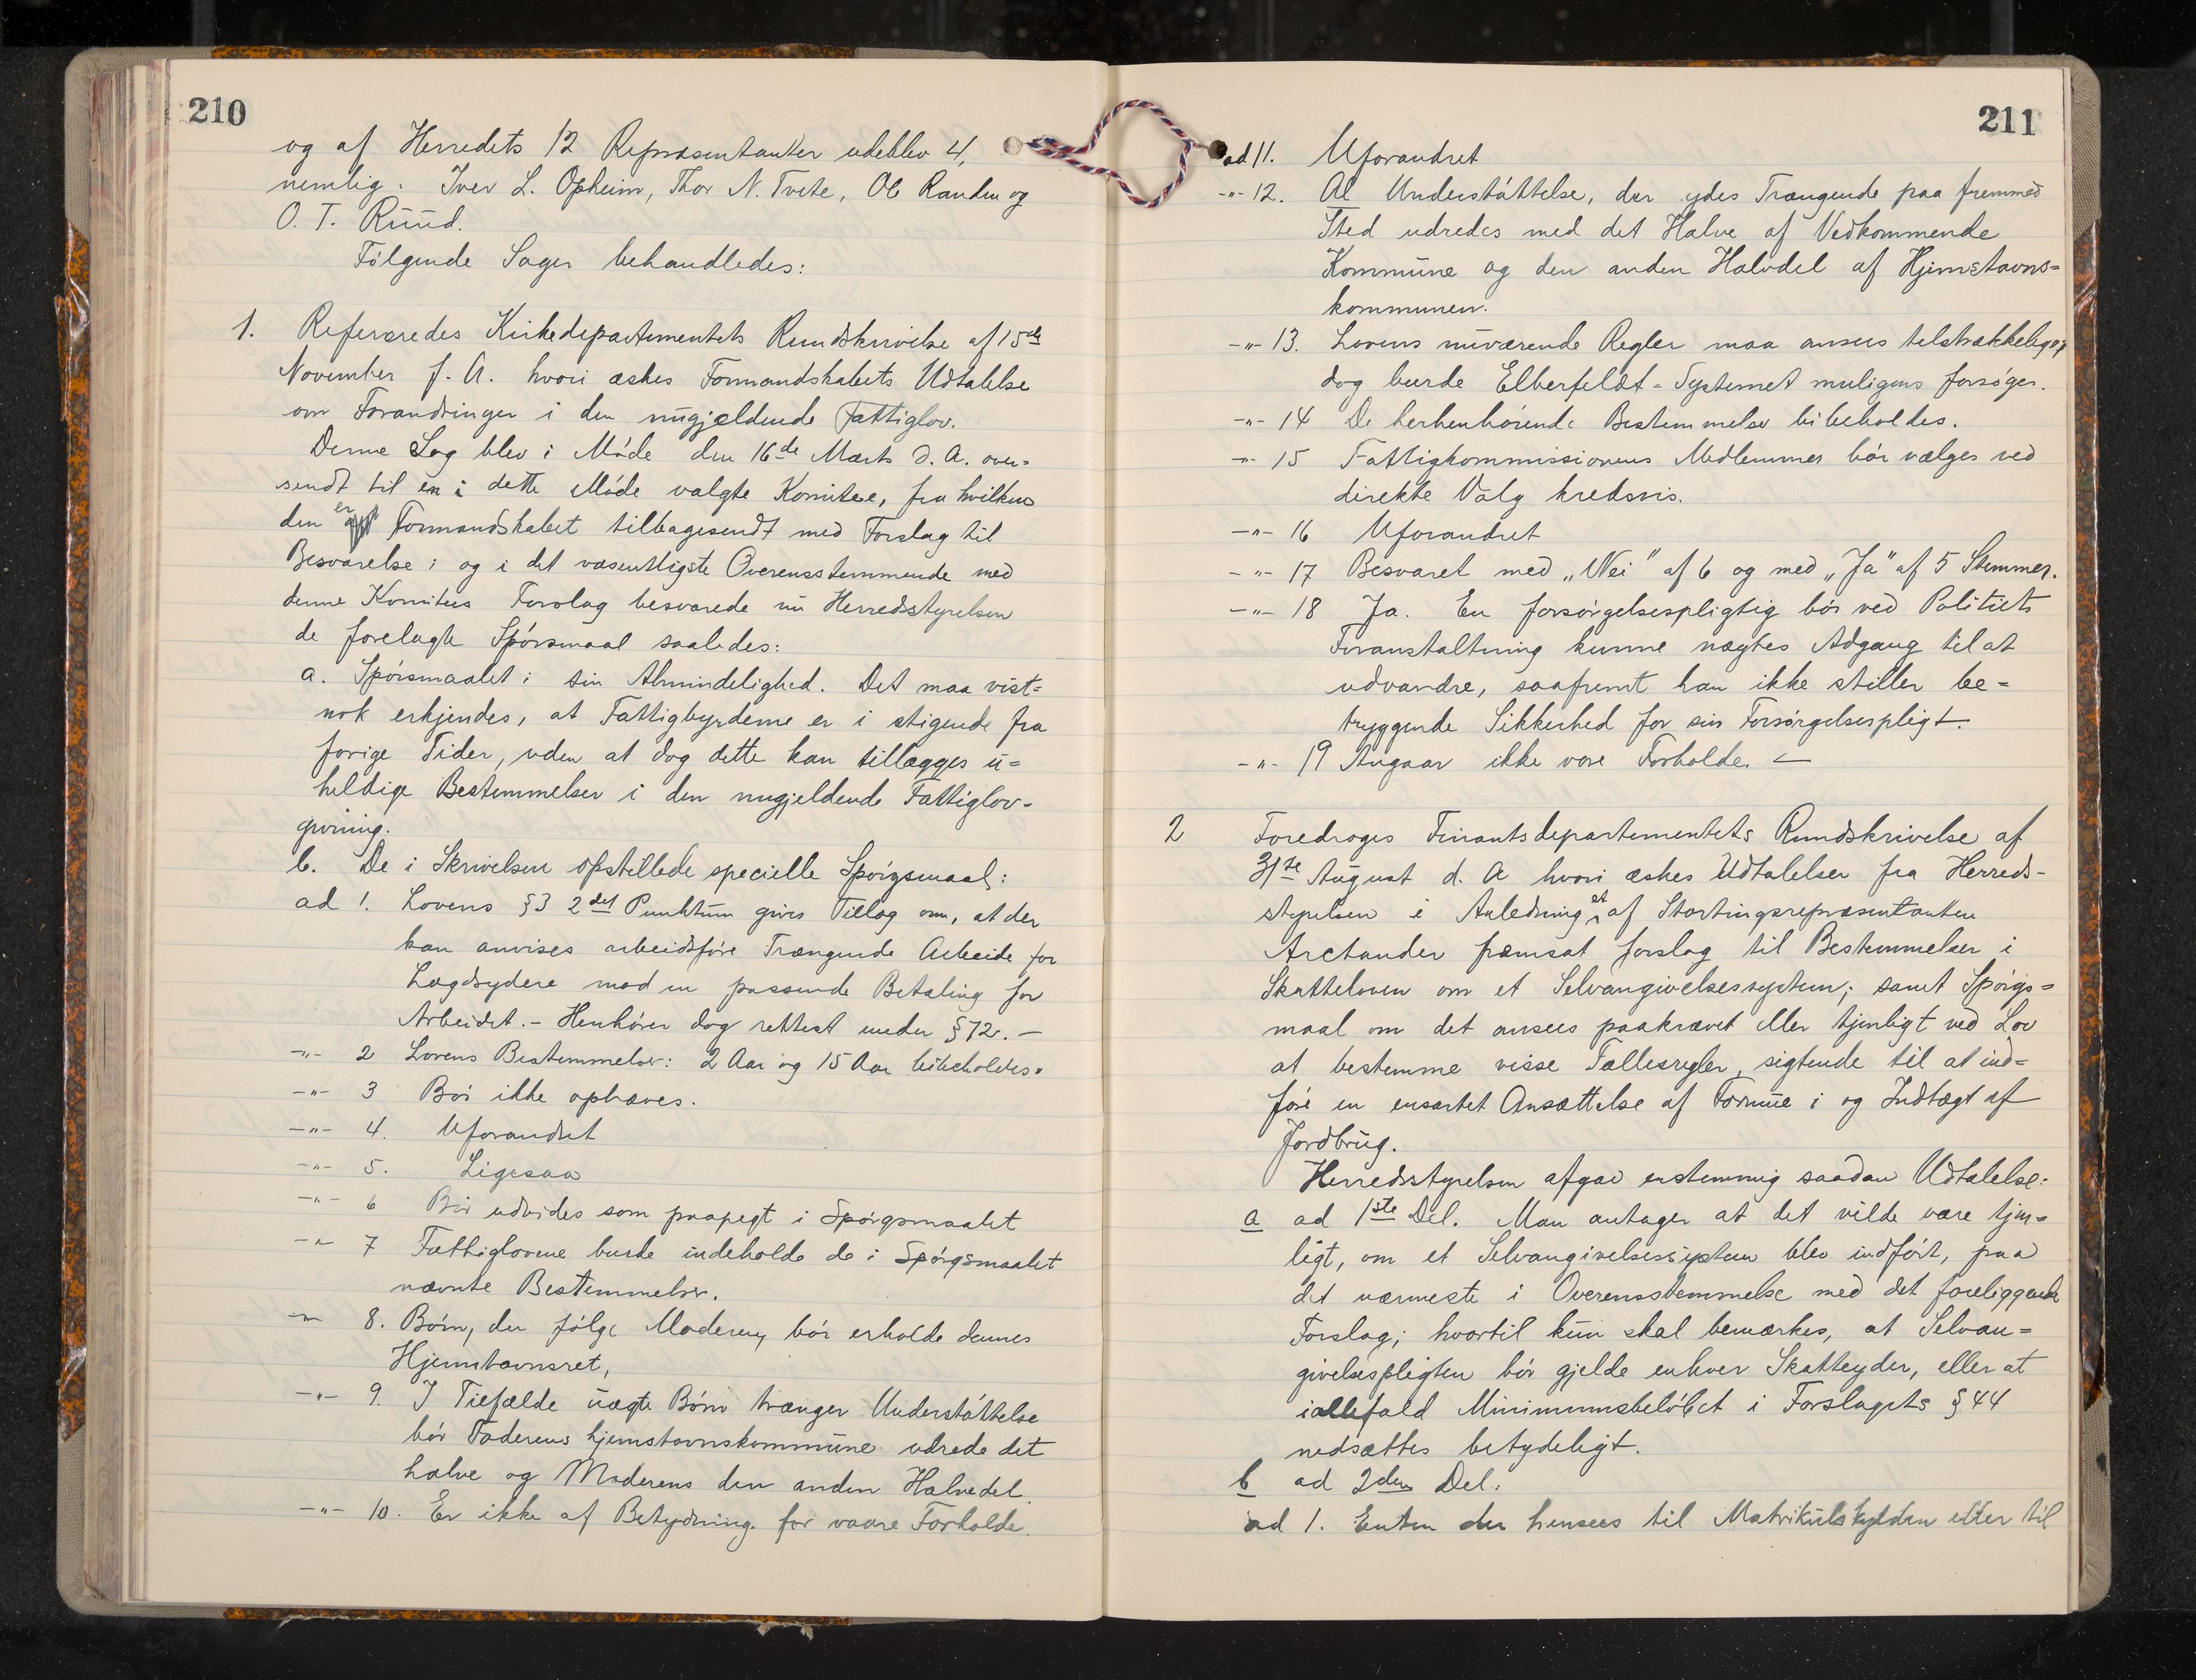 210
og af Herredets 12 Repræsentanter udeblev 4,
nemlig: Iver L. Opheim, Thor N. Tvete, Ole Randen og
O. T. Ruud.
Følgende Sager behandledes:
1. Refereredes Kirkedepartementets Rundskrivelse af 15de
November f. A. hvori æskes Formandskabets Udtalelse
om Forandringer i den nugjældende Fattiglov.
Denne Sag blev i Møde den 16de Marts d. A. over-
sendt til en i dette Møde valgte Komitee, fra hvilken
den er Formandskabet tilbagesendt med Forslag til
Besvarelse; og i det væsentligste Overensstemmende med
denne Komitees Forslag besvarede nu Herredsstyrelsen
de forelagte Spørsmaal saaledes:
a. Spørsmaalet i sin Almindelighed. Det maa vist-
nok erkjendes, at Fattigbyrderne er i stigende fra
forige Tider, uden at dog dette kan tillægges u-
heldige Bestemmelser i den nugjeldende Fattiglov-
givning.
b. De i Skrivelsen opstillede specielle Spørgsmaal:
ad 1. Lovens §3 2det Punktum gives Tillæg om, at der
kan anvises arbeidsføre Trængende Arbeide for
Lægdsydere mod en passende Betaling for
Arbeidet. - Henhører dog rettest under §12. -
-"- 2 Lovens Bestemmelser: 2 Aar og 15 Aar bibeholdes.
-"- 3 Bør ikke ophæves.
-"- 4. Uforandret
-"- 5. Ligesaa
-"- 6 Bør udvides som paapegt i Spørgsmaalet
-"- 7 Fattiglovene burde indeholde de i Spørgsmaalet
nævnte Bestemmelser.
-"- 8. Børn, der følge Moderen, bør erholde dennes
Hjemstavnsret,
-"- 9. I Tilfælde uægte Børn trænger Understøttelse
bør Faderens hjemstavnskommune udrede det
halve og Moderens den anden Halvedel.
-"- 10. Er ikke af Betydning for vaare Forholde.
211
ad 11. Uforandret
-"- 12. Al Understøttelse, der ydes Trængende paa fremmed
Sted udredes med det Halve af Vedkommende
Kommune og den anden Halvdel af Hjemstavns-
kommunen.
-"- 13. Lovens nuværende Regler maa ansees telstrækkelige,
dog burde Elberfeldt-Systemet muligens forsøges.
-"- 14 De herhenhørende Bestemmelser bibeholdes.
-"- 15 Fattigkommissionens Medlemmer bør vælges ved
direkte Valg kredsvis.
-"- 16 Uforandret
-"- 17 Besvaret med „Nei" af 6 og med „Ja" af 5 Stemmer.
-"- 18 Ja. En forsørgelsespligtig bør ved Politiets
Foranstaltning kunne nægtes Adgang til at
udvandre, saafremt han ikke stiller be-
tryggende Sikkerhed for sin Forsørgelsespligt.
-"- 19 Angaar ikke vore Forholde.
2 Foredroges Finantsdepartementets Rundskrivelse af
31te August d. A hvori æskes Udtalelser fra Herreds-
styrelsen i Anledning et af Stortingsrepræsentanten
Arctander fræmsat forslag til Bestemmelser i
Skatteloven om et Selvangivelsessystem; samt Spørgs-
maal om det ansees paakrævet eller tjenligt ved Lov
at bestemme visse Fællesregler, sigtende til at ind-
føre en ensartet Ansættelse af Formue i og Indtægt af
Jordbrug.
Herredsstyrelsen afgav enstemmig saadan Udtalelse:
a ad 1ste Del. Man antager at det vilde være tjen-
ligt, om et Selvangivelsessystem blev indført, paa
det nærmeste i Overensstemmelse med det foreliggende
Forslag; hvortil kun skal bemærkes, at Selvan-
givelsespligten bør gjelde enhver Skatteyder, eller at
iallefald Minimumsbeløbet i Forslagets §44
nedsættes betydeligt.
b ad 2den Del:
ad 1. Enten der hensees til Matrikulskylden eller til